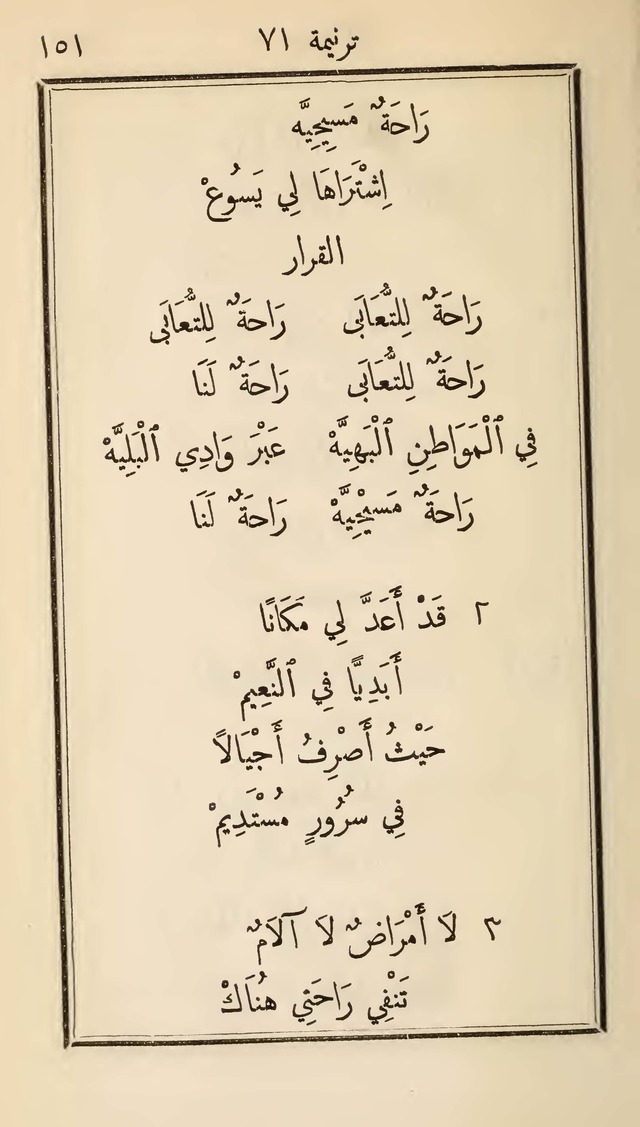 ترنيمة ٧١ ١٥١
رَاحَةٌ مَسِيحِيَّه
اِشْتَرَاهَا لِي يَسُوعْ
القرار
رَاحَةٌ لِلتُّعَابَى رَاحَةٌ لِلتُّعَابَى
رَاحَةٌ لِلتُّعَابَى رَاحَةٌ لَنَا
فِي ٱلْمَوَاطِنِ ٱلْبَهِيَّهْ عَبْرَ وَادِي ٱلْبَلِيَّهْ
رَاحَةٌ مَسِيْحِيَّهْ رَاحَةٌ لَنَا
٢ قَدْ أَعَدَّ لِي مَكَانًا
أَبَدِيًّا فِي ٱلنَّعِيمْ
حَيْثُ أَصْرِفُ أَجْيَالاً
فِي سُرُورٍ مُسْتَدِيمْ
٣ لاَ أَمْرَاضٌ لاَ آلاَمٌ
تَنْفِي رَاحَتِي هُنَاكْ